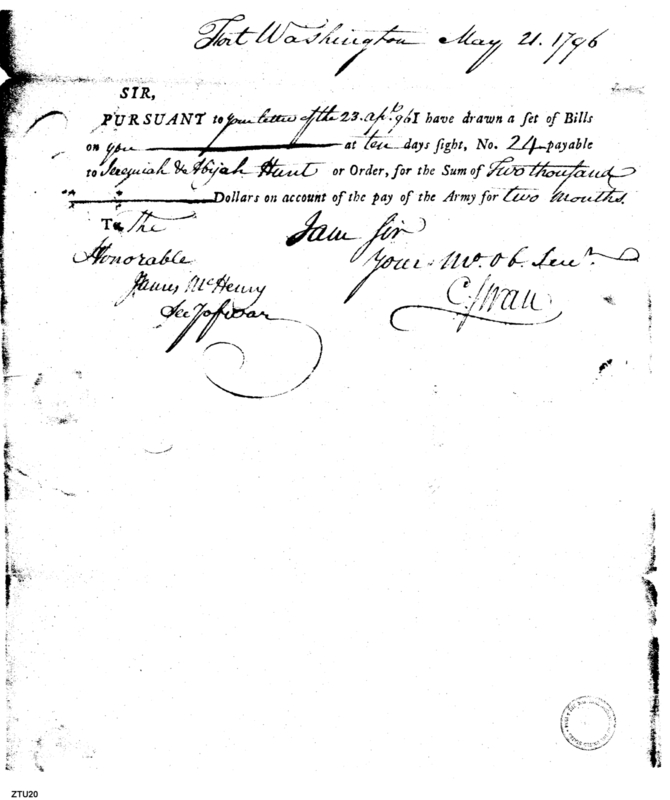 Fort Washington May 21. 1796
SIR,
PURSUANT to your letter of the 23. Apl. 96 I have drawn a set of Bills
on you at ten days sight, No. 24 payable
to Jeremiah & Abijah Hunt or Order, for the Sum of Two thousand
Dollars on account of the pay of the Army for two months.
To The
Honorable
James McHenry
Sec'y of War
I am Sir
Your Mo. Ob. Serv.
C Swan
ZTU20